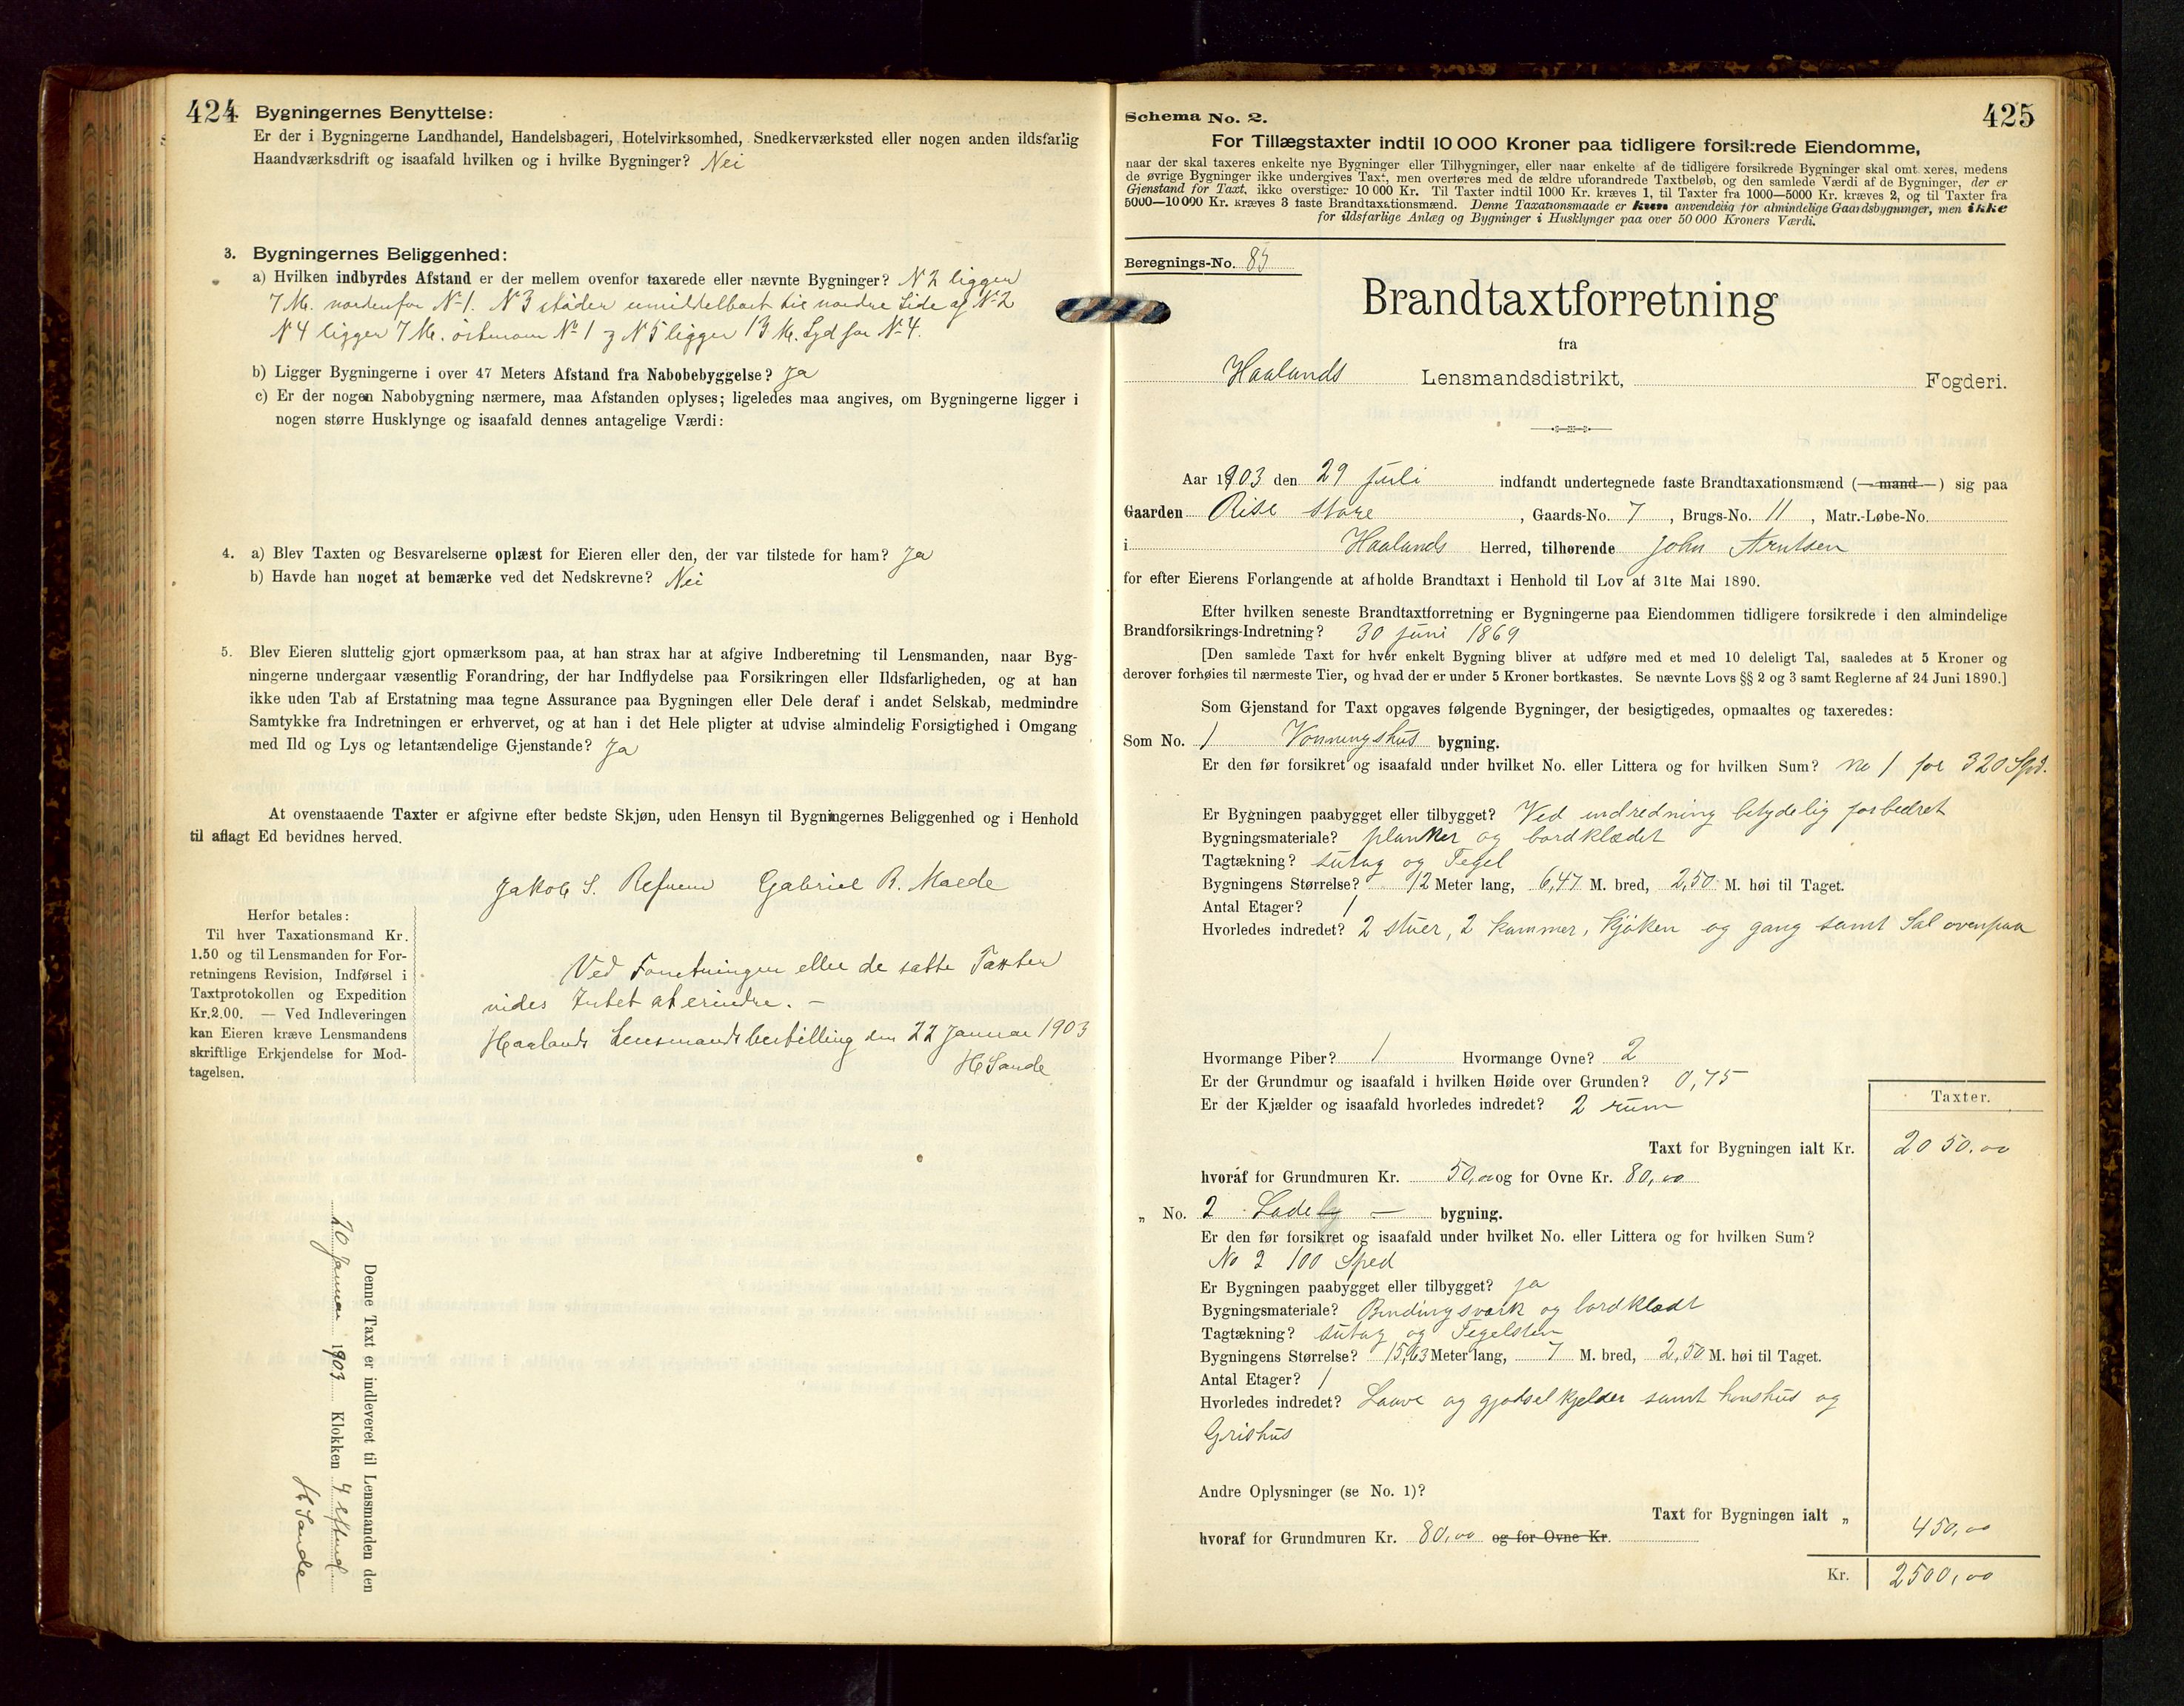 424
Bygningernes Benyttelse:
Er der i Bygningerne Landhandel, Handelsbageri, Hotelvirksomhed, Snedkerværksted eller nogen anden ildsfarlig
Haandværksdrift og isaafald hvilken og i hvilke Bygninger? Nei
3. Bygningernes Beliggenhed:
a) Hvilken indbyrdes Afstand er der mellem ovenfor taxerede eller nævnte Bygninger? N 2 ligger
7 M. nordenfor N 1. N 3 støder umiddelbart til nordre Side af N 2
N 4 ligger 7 M. N 1 og N 5 ligger 13 M. Syd for N 4.
b) Ligger Bygningerne i over 47 Meters Afstand fra Nabobebyggelse? Ja
c) Er der nogen Nabobygning nærmere, maa Afstanden oplyses; ligeledes maa angives, om Bygningerne ligger i
nogen større Husklynge og isaafald dennes antagelige Værdi:
4. a) Blev Taxten og Besvarelserne oplæst for Eieren eller den, der var tilstede for ham? Ja
b) Havde han noget at bemærke ved det Nedskrevne? Nei
5. Blev Eieren sluttelig gjort opmærksom paa, at han strax har at afgive Indberetning til Lensmanden, naar Byg-
ningerne undergaar væsentlig Forandring, der har Indflydelse paa Forsikringen eller Ildsfarligheden, og at han
ikke uden Tab af Erstatning maa tegne Assurance paa Bygningen eller Dele deraf i andet Selskab, medmindre
Samtykke fra Indretningen er erhvervet, og at han i det Hele pligter at udvise almindelig Forsigtighed i Omgang
med Ild og Lys og letantændelige Gjenstande? Ja
At ovenstaaende Taxter er afgivne efter bedste Skjøn, uden Hensyn til Bygningernes Beliggenhed og i Henhold
til aflagt Ed bevidnes herved.
Jakob S. Gabriel B. Malde
Herfor betales:
Til hver Taxationsmand Kr.
1.50 og til Lensmanden for For-
retningens Revision, Indførsel i
Taxtprotokollen og Expedition
Kr. 2.00. — Ved Indleveringen
kan Eieren kræve Lensmandens
skriftlige Erkjendelse for Mod-
tagelsen.
Ved Forretningen eller de satte Taxter
vides Intet at erindre. –
Haalands Lensmandsbestilling den 22 Januar 1903
H Sande
Denne Taxt er indleveret til Lensmanden den
20 Januar 1903 Klokken 4 efterm
H Sande
425
Schema No. 2.
For Tillægstaxter indtil 10 000 Kroner paa tidligere forsikrede Eiendomme,
naar der skal taxeres enkelte nye Bygninger eller Tilbygninger, eller naar enkelte af de tidligere forsikrede Bygninger skal omtaxeres, medens
de øvrige Bygninger ikke undergives Taxt, men overføres med de ældre uforandrede Taxtbeløb, og den samlede Værdi af de Bygninger, der er
Gjenstand for Taxt, ikke overstiger 10 000 Kr. Til Taxter indtil 1000 Kr. kræves 1, til Taxter fra 1000—5000 Kr. kræves 2, og til Taxter fra
5000—10 000 Kr. kræves 3 faste Brandtaxationsmænd. Denne Taxationsmaade er kun anvendelig for almindelige Gaardsbygninger, men ikke
for ildsfarlige Anlæg og Bygninger i Husklynger paa over 50 000 Kroners Værdi.
Beregnings-No. 85
Brandtaxtforretning
fra
Haalands Lensmandsdistrikt, Fogderi.
Aar 1903 den 29 Juli indfandt undertegnede faste Brandtaxationsmænd (—mand—) sig paa
Gaarden Risa store, Gaards-No. 7, Brugs-No. 11, Matr.-Løbe-No.
i Haalands Herred, tilhørende John Arntsen
for efter Eierens Forlangende at afholde Brandtaxt i Henhold til Lov af 31te Mai 1890.
Efter hvilken seneste Brandtaxtforretning er Bygningerne paa Eiendommen tidligere forsikrede i den almindelige
Brandforsikrings-Indretning? 30 juni 1869
[Den samlede Taxt for hver enkelt Bygning bliver at udføre med et med 10 deleligt Tal, saaledes at 5 Kroner og
derover forhøies til nærmeste Tier, og hvad der er under 5 Kroner bortkastes. Se nævnte Lovs §§ 2 og 3 samt Reglerne af 24 Juni 1890.]
Som Gjenstand for Taxt opgaves følgende Bygninger, der besigtigedes, opmaaltes og taxeredes:
Som No. 1 Vonningshus bygning.
Er den før forsikret og isaafald under hvilket No. eller Littera og for hvilken Sum? no 1 for 320 Spd.
Er Bygningen paabygget eller tilbygget? Ved indredning betydelig forbedret
Bygningsmateriale? planker og bordklædet
Tagtækning? sutag og Tegel
Bygningens Størrelse? 12 Meter lang, 6,47 M. bred, 2,50 M. høi til Taget.
Antal Etager? 1
Hvorledes indredet? 2 stuer, 2 kammer, kjøken og gang samt Sal ovenpaa
Hvormange Piber? 1 Hvormange Ovne? 2
Er der Grundmur og isaafald i hvilken Høide over Grunden? 0,75
Er der Kjælder og isaafald hvorledes indredet? 2 rum
Taxter.
Taxt for Bygningen ialt Kr. 2050.00
hvoraf for Grundmuren Kr. 50,00 og for Ovne Kr. 80,00
„ No. 2 Lade — bygning.
Er den før forsikret og isaafald under hvilket No. eller Littera og for hvilken Sum?
No 2 100 Sped
Er Bygningen paabygget eller tilbygget? ja
Bygningsmateriale? Bindingsværk og bordklædt
Tagtækning? sutag og Tegelsten
Bygningens Størrelse? 15,63 Meter lang, 7 M. bred, 2,50 M. høi til Taget.
Antal Etager? 1
Hvorledes indredet? Laave og gjødselkjelder samt honshus og
Grishus
Andre Oplysninger (se No. 1)?
Taxt for Bygningen ialt „ 450,00
hvoraf for Grundmuren Kr. 80,00 og for Ovne Kr.
Kr. 2500,00